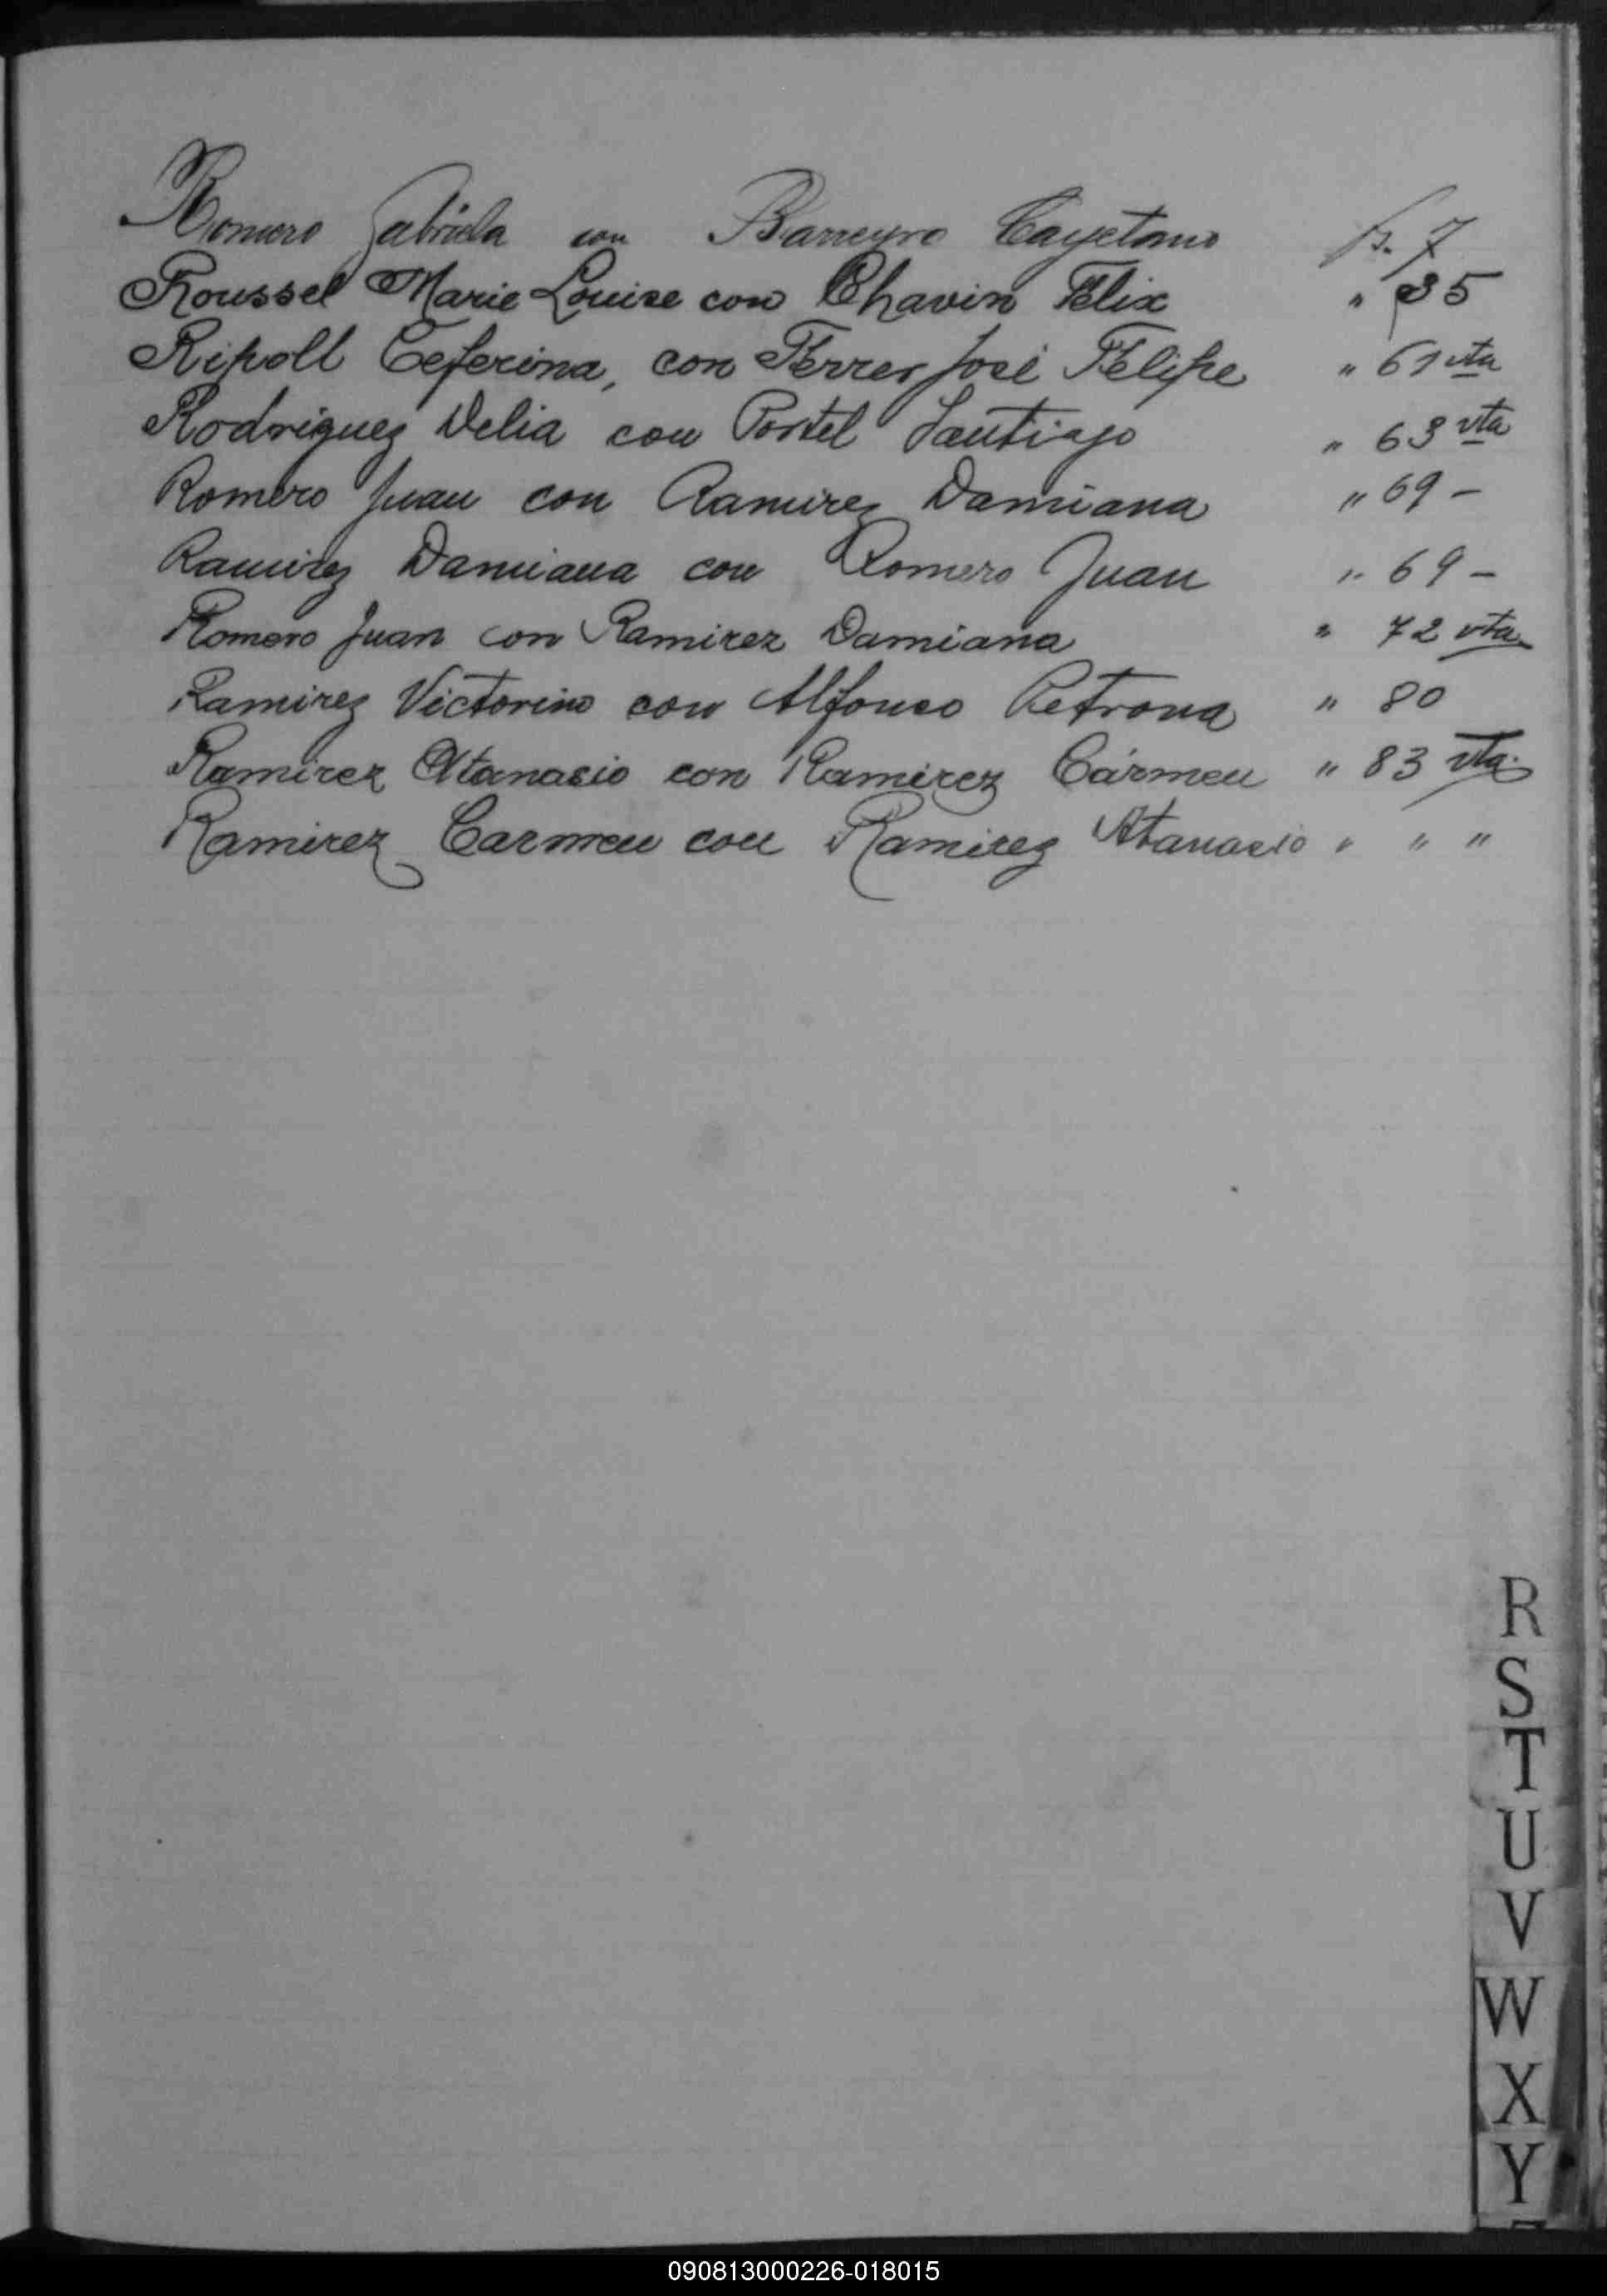 Romero Gabriela con Barreyro Cayetano fs. 7
Roussel Marie Louise con Chavin Felix " 35
Ripoll Ceferina, con Ferrer José Felipe " 61 vta
Rodriguez Delia con Portel Santiago " 63 vta
Romero Juan con Ramirez Damiana " 69 –
Ramirez Damiana con Romero Juan " 69 –
Romero Juan con Ramirez Damiana " 72 vta
Ramirez Victorino con Alfonso Petrona " 80
Ramirez Atanasio con Ramirez Cármen " 83 vta.
Ramirez Carmen con Ramirez Atanasio " " "
R
S
T
U
V
W
X
Y
090813000226-018015